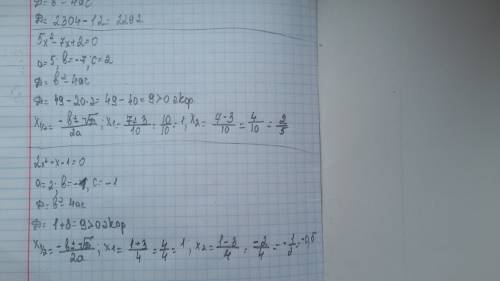 D = b² - 4ac
D = 2304 - 12 = 2292
5x² - 7x + 2 = 0
a = 5; b = -7; c = 2
D = b² - 4ac
D = 49 - 20·2 = 49 - 40 = 9 > 0 2кор
x₁/₂ = (-b ± √D)/2a; x₁ = (7+3)/10 = 10/10 = 1; x₂ = (7-3)/10 = 4/10 = 2/5
2x² - x - 1 = 0
a = 2; b = -1, c = -1
D = b² - 4ac
D = 1 + 8 = 9 > 0 2кор
x₁/₂ = (-b ± √D)/2a; x₁ = (1+3)/4 = 4/4 = 1, x₂ = (1-3)/4 = -2/4 = -1/2 = -0,5